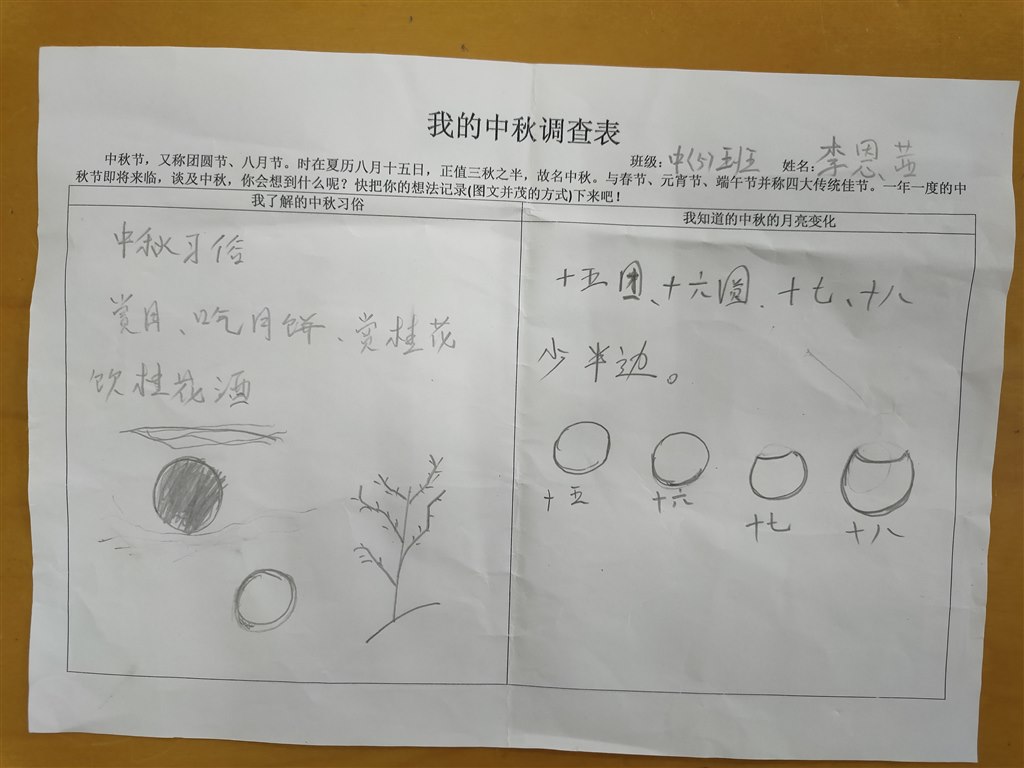 我的中秋调查表
班级: 中(5)班 姓名: 李恩茜
中秋节，又称团圆节、八月节。时在夏历八月十五日，正值三秋之半，故名中秋。与春节、元宵节、端午节并称四大传统佳节。一年一度的中
秋节即将来临，谈及中秋，你会想到什么呢？快把你的想法记录(图文并茂的方式)下来吧！
我了解的中秋习俗
中秋习俗
赏月、吃月饼、赏桂花
饮桂花酒
我知道的中秋的月亮变化
十五团、十六圆、十七、十八
少半边。
十五
十六
十七
十八